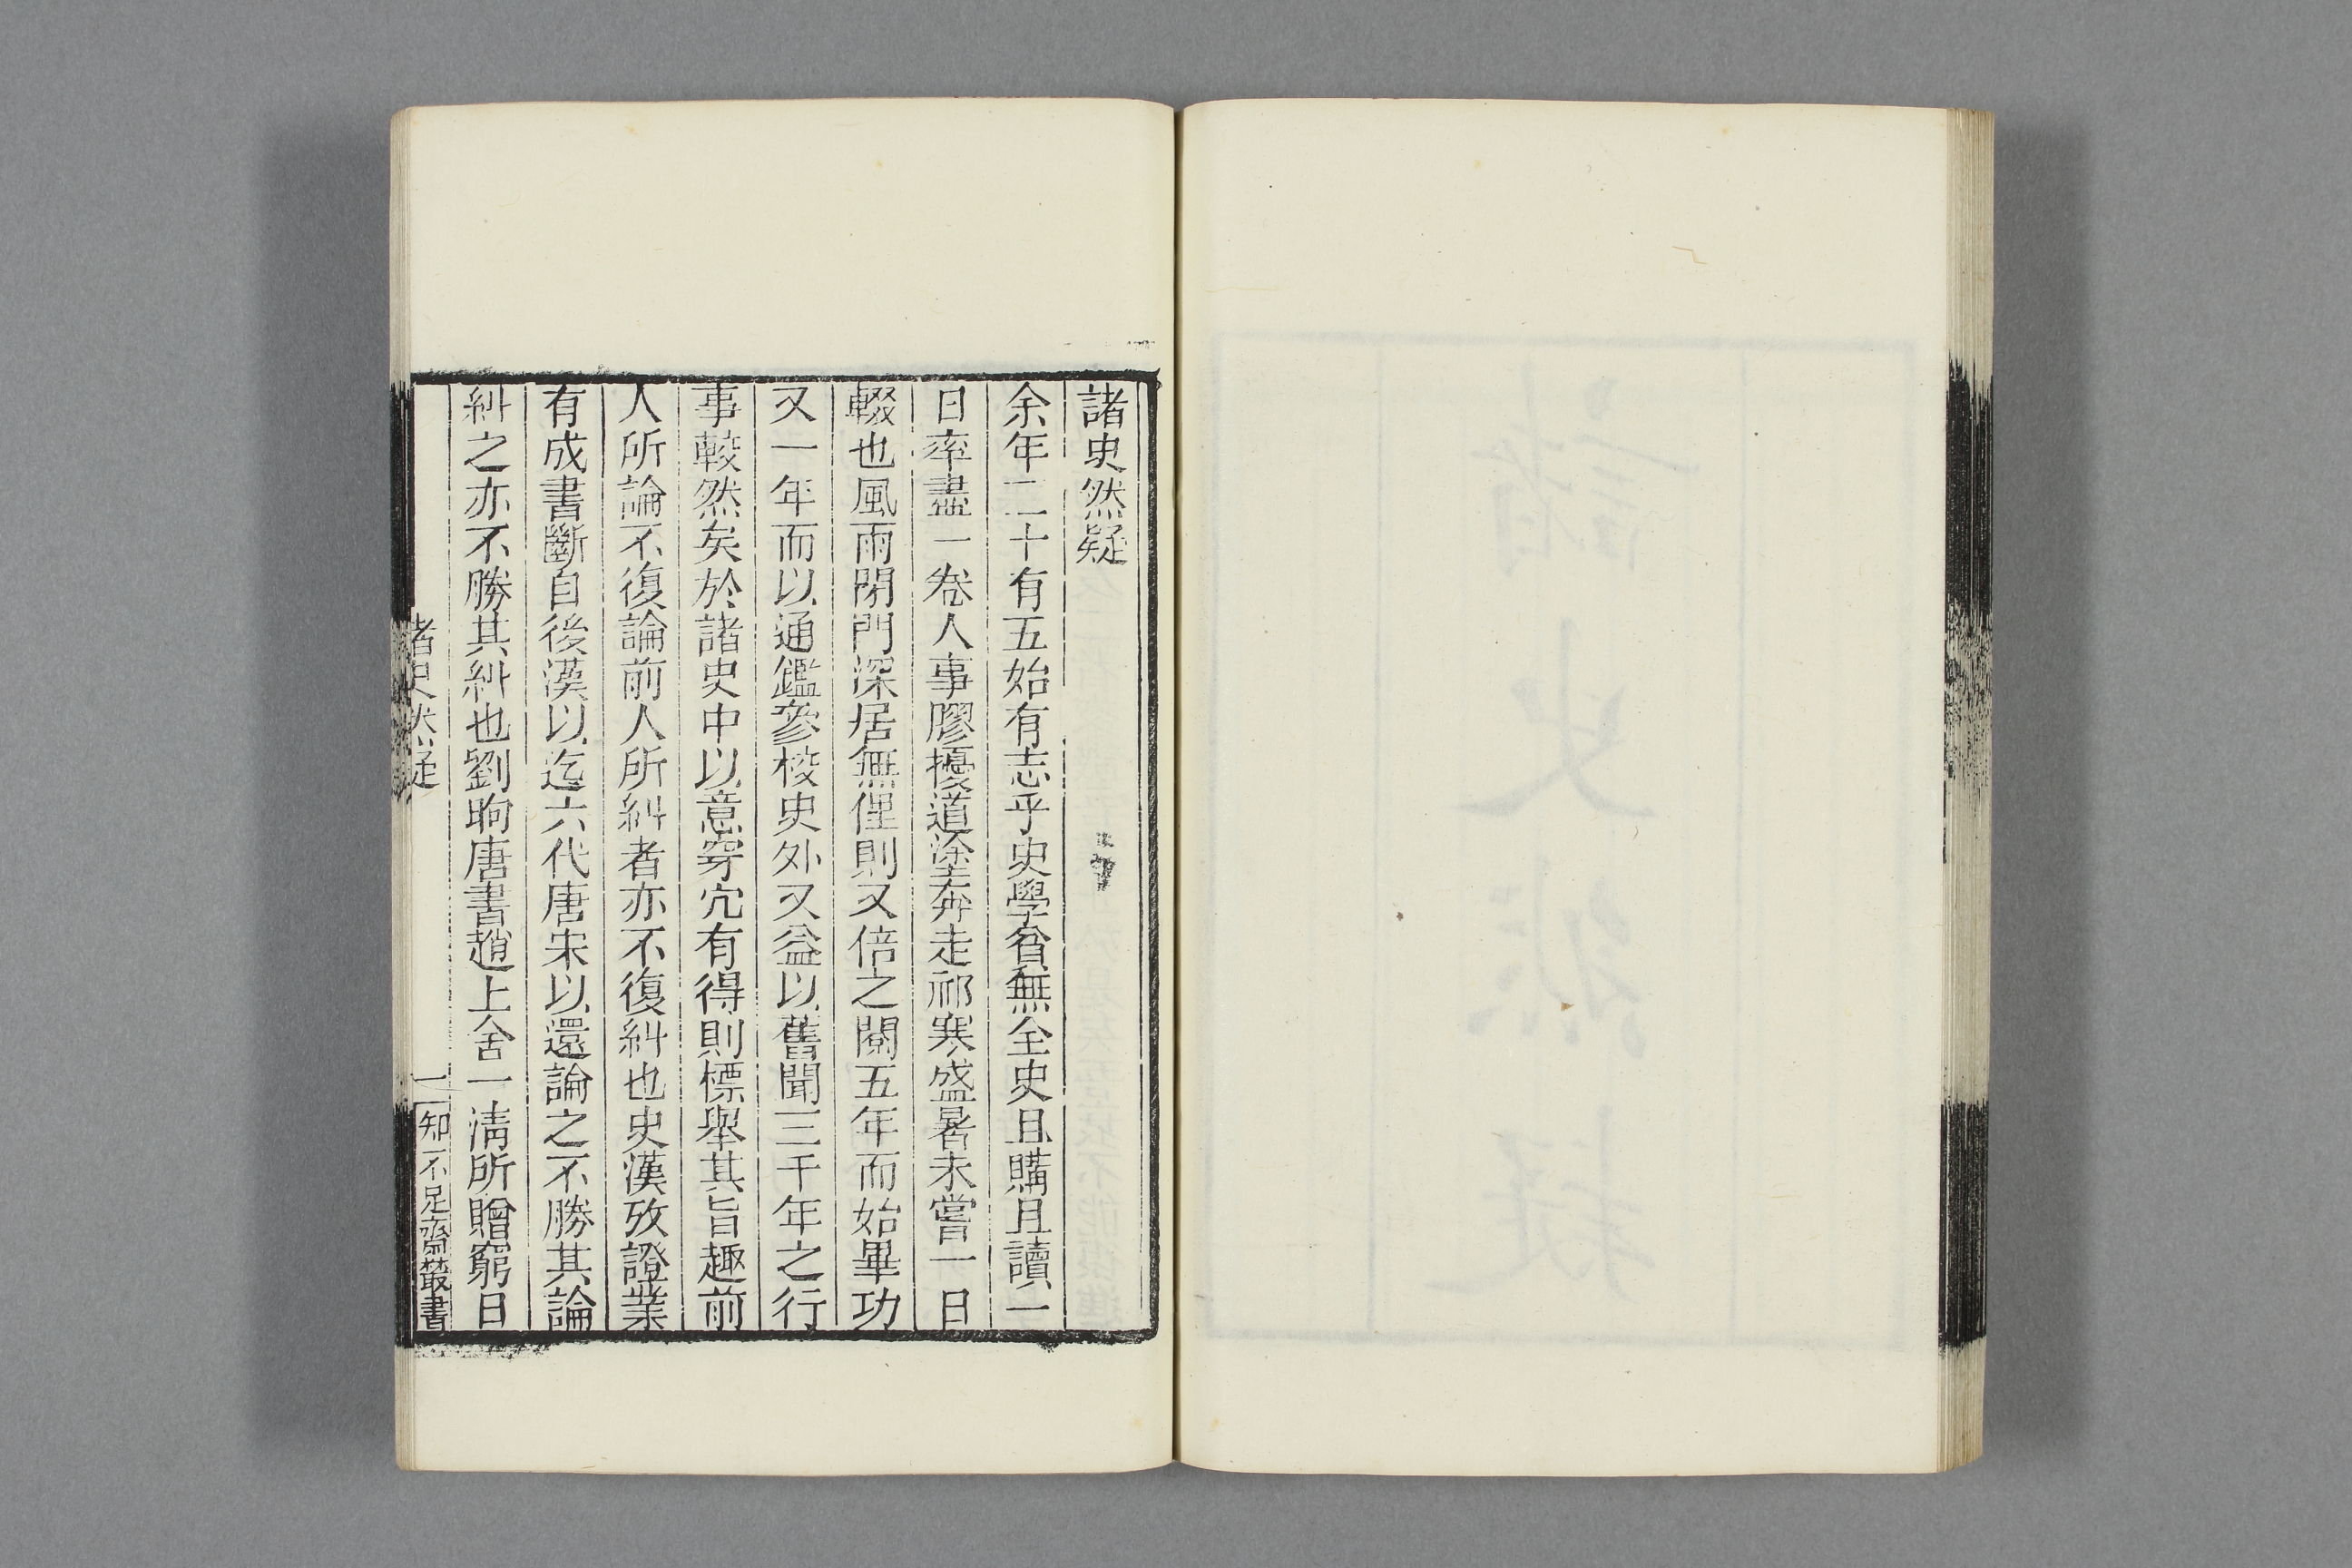 諸史然疑
余年二十有五始有志乎史學貧無全史且購且讀一
日率盡一卷人事膠擾道塗奔走祁寒盛暑未嘗一日
輟也風雨閉門深居無俚則又倍之閱五年而始畢功
又一年而以通鑑參校史外又益以舊聞三千年之行
事較然矣於諸史中以意穿穴有得則標舉其旨趣前
人所論不復論前人所糾者亦不復糾也史漢攷證業
有成書斷自後漢以迄六代唐宋以還論之不勝其論
糾之亦不勝其糾也劉昫唐書趙上舍一清所贈窮日
諸史然疑
一
知不足齋叢書